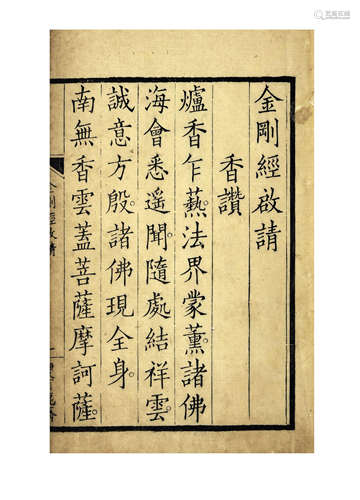 金剛經啟請
香讚
爐香乍爇。法界蒙薰。諸佛
海會悉遥聞。隨處結祥雲。
誠意方殷。諸佛現全身。
南無香雲蓋菩薩摩訶薩。
金剛經啟請